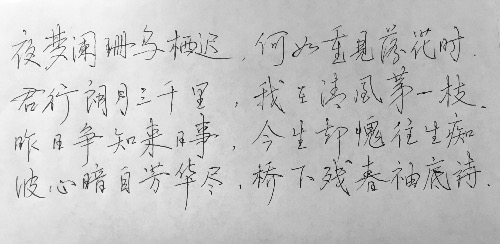 夜梦阑珊乌栖迟，何如重见落花时．
君行朗月三千里，我在清风第一枝．
昨日争知来日事，今生却愧往生痴
波心暗自芳华尽，桥下残春袖底诗．